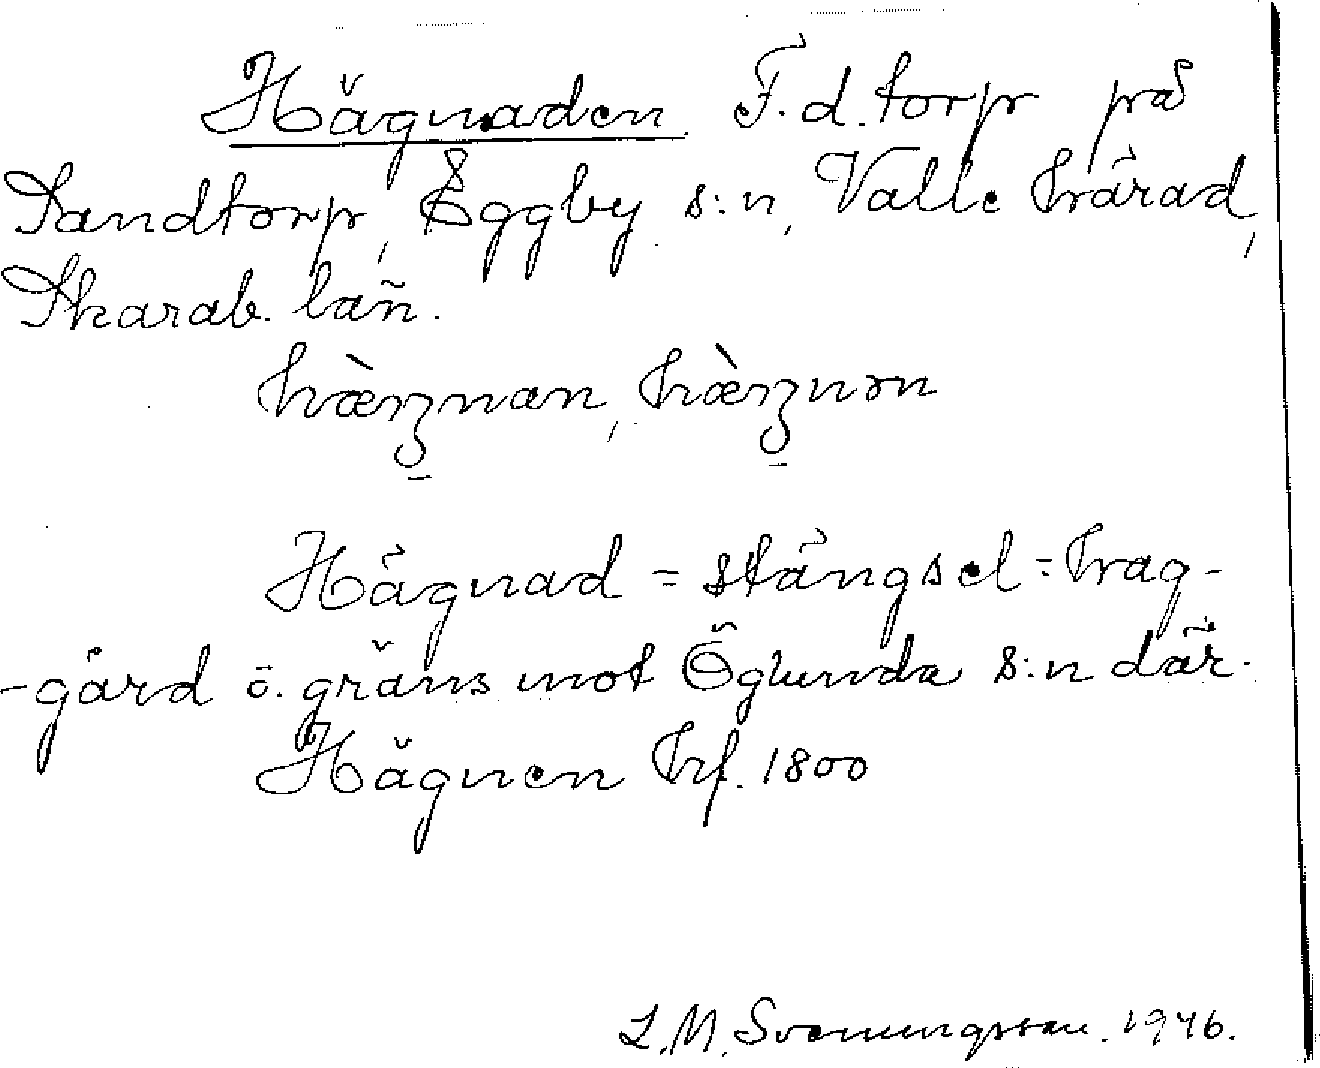 Hägnaden. F. d. torp på
Sandtorp, Eggby s:n, Valle härad,
Skarab. län.
Hägnad = stängsel = hag-
-gård ö. gräns mot Öglunda s:n där.
Hägnen hf. 1800
L. M. Svenungsson. 1946.